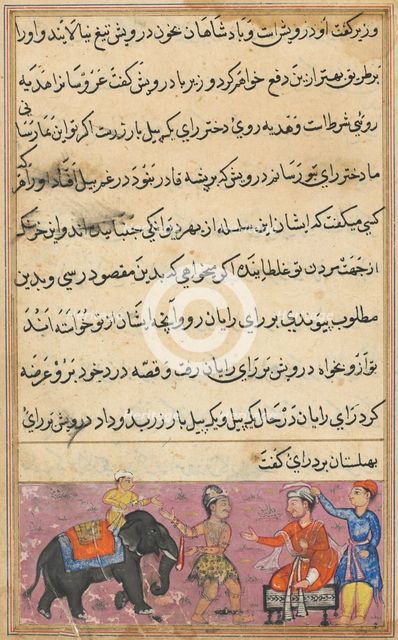 وزیر گفت او درویش است و پادشاهان بخون درویش تیغ نیالایند و او را
بر طریق بهتر ازین دفع خواهم کرد وزیر با درویش گفت عروسانرا هدیه
روئی شرط است و هدیه روی دختر رای یک پیل بار زرست اگر تو این بما رسانی
ما دختر رای بتو رسانیم درویش که بریشه قادر نبود در غم پیل افتاد و او هر
کسی میگفت که ایشان این سلسله از بهر دیوانکی جنبانیده اند و این خر سنگ
از جهت مردن تو غلطانیده اگر میخواهی که بدین مقصود رسی و بدین
مطلوب پیوندی بر رای رایان رو و آنچه ایشان از تو خواسته اند
تو ازو بخواه درویش بر رای رایان رفت و قصه درد خود برو عرضه
کرد رای رایان در حال یک پیل و یک پیل بار زر بدو داد درویش بر رای
بهلستان برد رای گفت